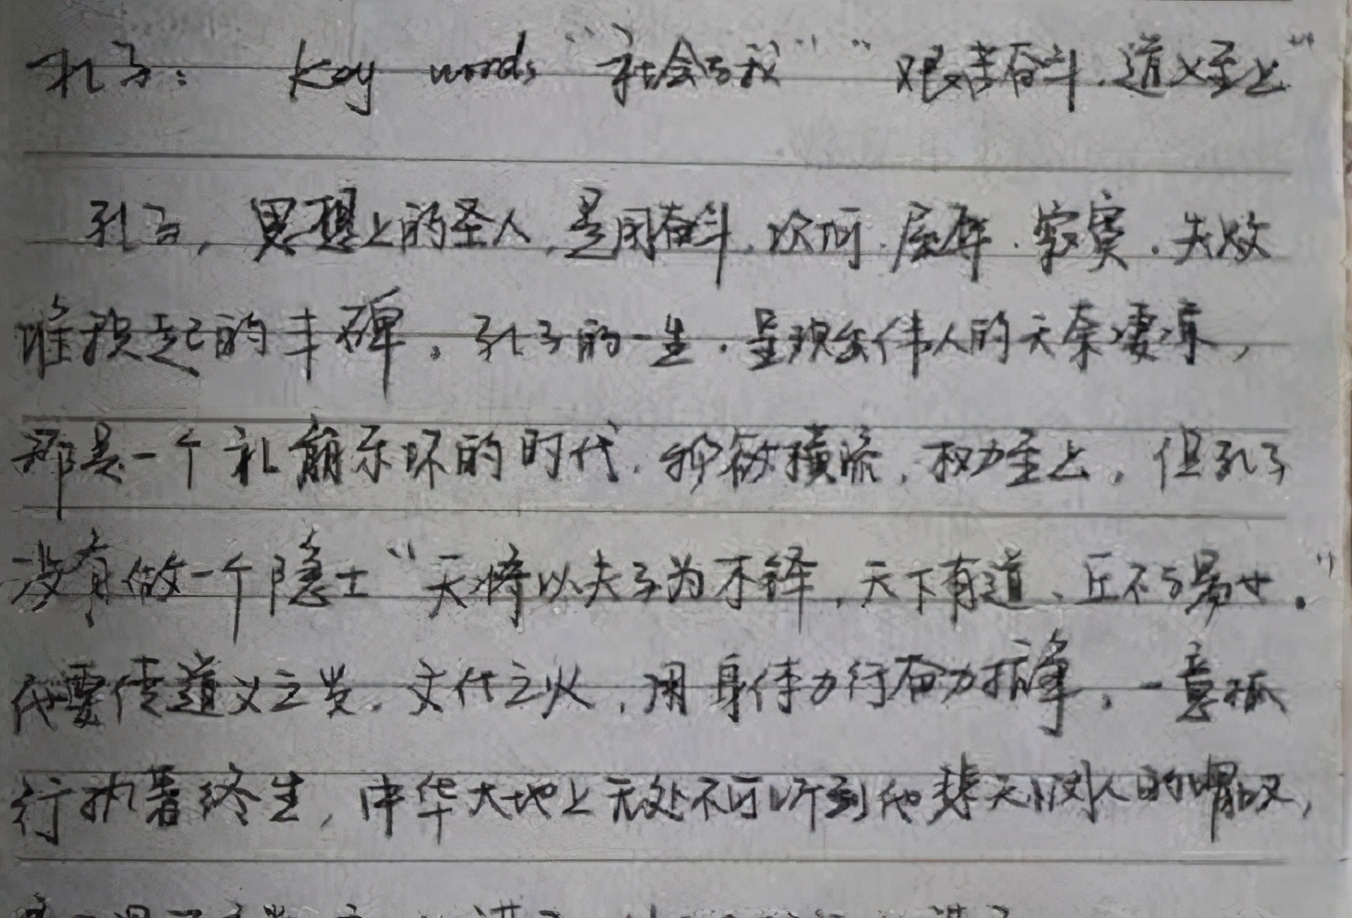 孔子： Key words “社会与我” “艰苦奋斗、道义至上”
孔子，思想上的圣人，是用奋斗、坎坷、屈辱、寂寞、失败
堆积起的丰碑。孔子的一生，呈现出伟人的天荒凄凉，
那是一个礼崩乐坏的时代，物欲横流，权力至上，但孔子
没有做一个隐士“天将以夫子为木铎，天下有道、丘不与易也。”
他要传道义之光，文化之火，用身体力行奋力抗争，一意孤
行执著终生，中华大地上无处不可听到他悲天悯人的喟叹，